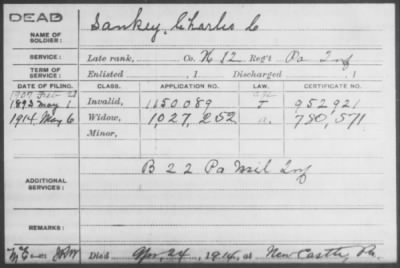 DEAD
NAME OF SOLDIER: Sankey, Charles C
SERVICE: Late rank, Co. K 12 Reg't Pa Inf
TERM OF SERVICE: Enlisted , 1 Discharged , 1
DATE OF FILING. CLASS. APPLICATION NO. LAW. CERTIFICATE NO.
1907
1892 May 1 Invalid, 1150.089 952,921
1914 May 6 Widow, 1,027,252 780,571
Minor,
ADDITIONAL SERVICES: B 22 Pa Mil Inf
REMARKS:
Died Apr. 24, 1914, at New Castle, Pa.